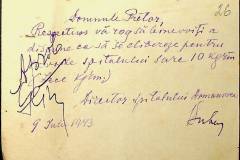 26
Domnule Pretor,
Respectuos vă rog să binevoiți a
dispune ca să se elibereze pentru
spitalului sare 10 kgrm
(zece kgrm)
Directorul spitalului Domanovca
9 Iulie 1943